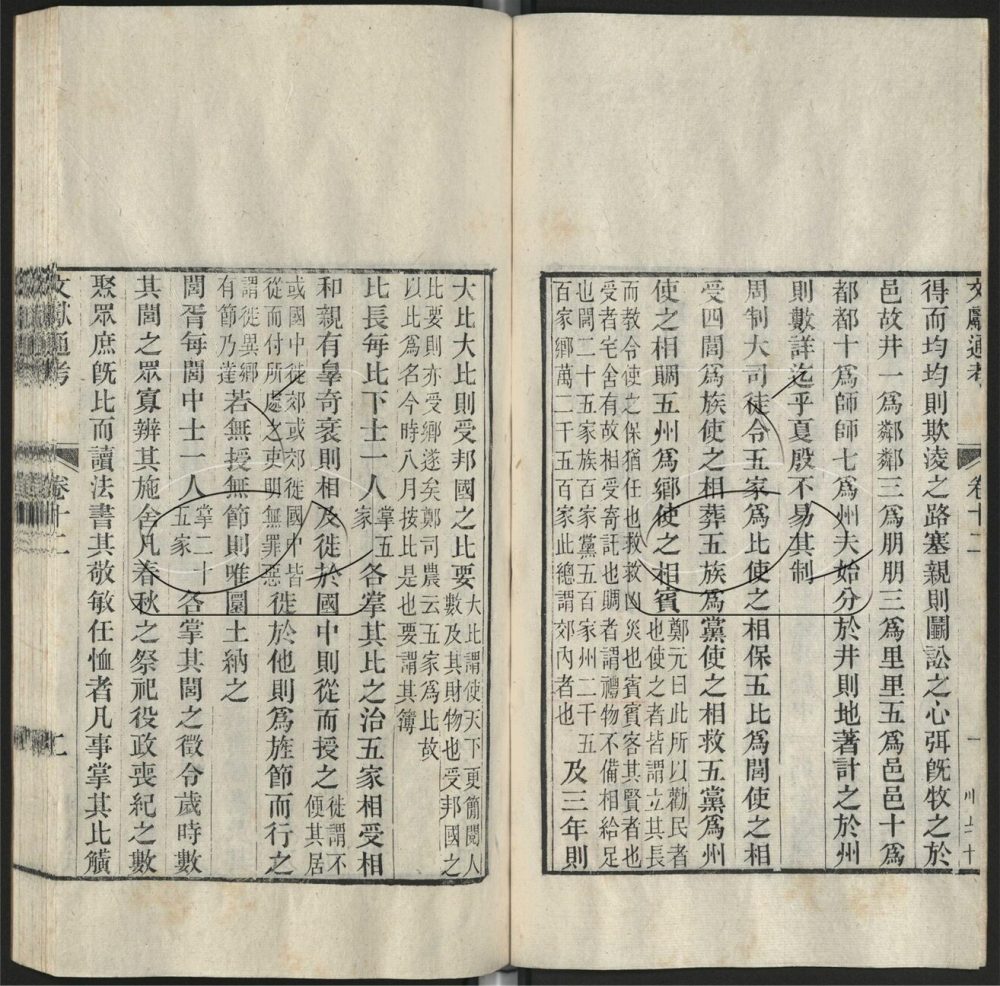 文獻通考 卷十二 一
得而均均則欺淩之路塞親則鬬訟之心弭旣牧之於
邑故井一爲鄰鄰三爲朋朋三爲里里五爲邑邑十爲
都都十爲師師七爲州夫始分於井則地著計之於州
則數詳迄乎夏殷不易其制
周制大司徒令五家爲比使之相保五比爲閭使之相
受四閭爲族使之相葬五族爲黨使之相救五黨爲州
使之相賙五州爲鄉使之相賓
鄭元曰此所以勸民者
也使之者皆謂立其長
而教令使之保猶任也救救凶災也賓賓客其賢者也
受者宅舍有故相受寄託也賙者謂禮物不備相給足
也閭二十五家族百家黨五百家州二千五
百家鄉萬二千五百家此總謂郊內者也
及三年則
大比大比則受邦國之比要
大比謂使天下更簡閱人
數及其財物也受邦國之
比要則亦受鄉遂矣鄭司農云五家爲比故
以比爲名今時八月按比是也要謂其簿
比長每比下士一人
掌五
家
各掌其比之治五家相受相
和親有辠奇衺則相及徙於國中則從而授之
徙謂不
便其居
或國中徙郊或郊徙國中皆
從而付所處之吏明無罪惡
徙於他則爲旌節而行之
謂徙異鄉
有節乃達
若無授無節則唯圜土納之
閭胥每閭中士一人
掌二十
五家
各掌其閭之徵令歲時數
其閭之眾寡辨其施舍凡春秋之祭祀役政喪紀之數
聚眾庶旣比而讀法書其敬敏任恤者凡事掌其比觵
文獻通考 卷十二